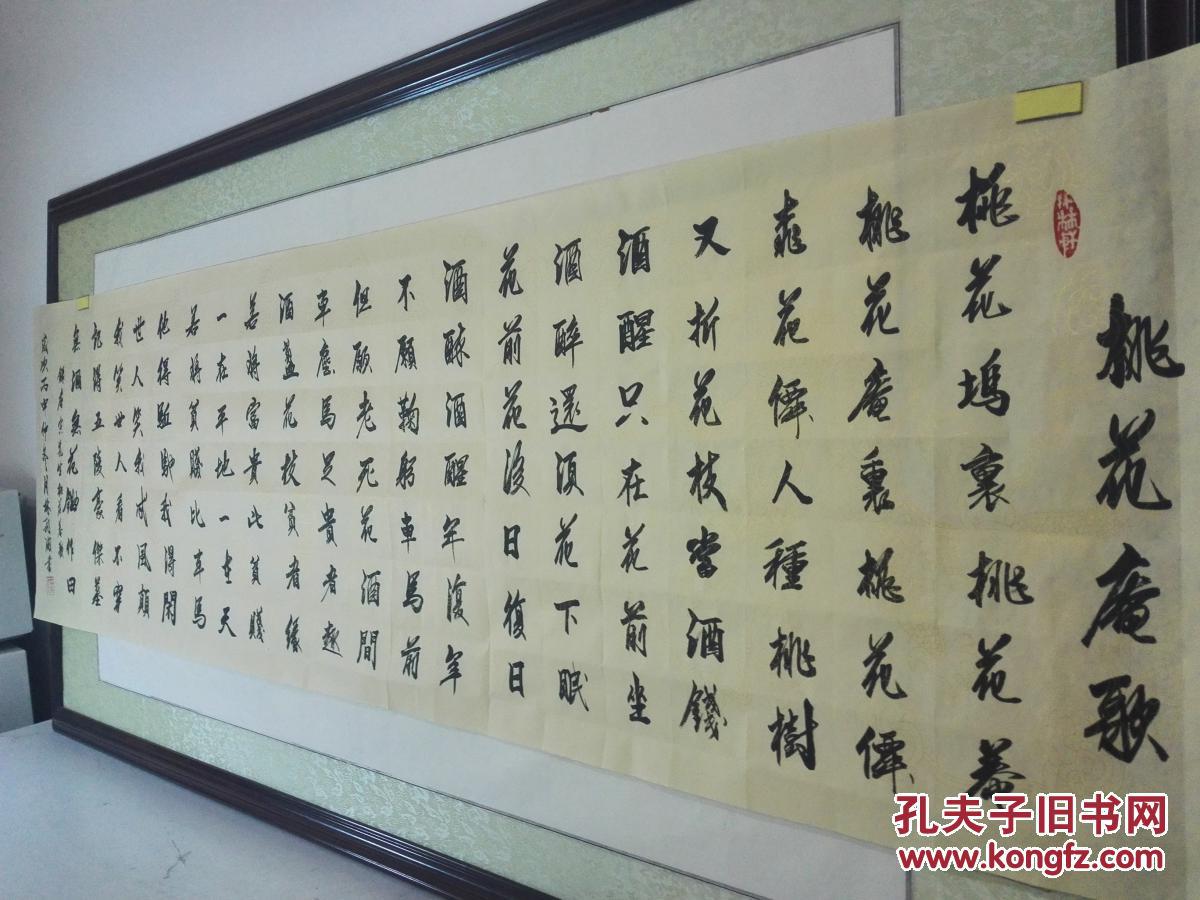 桃花庵歌
桃花塢裏桃花菴
桃花庵裏桃花僊
桃花僊人種桃樹
又折花枝當酒錢
酒醒只在花前坐
酒醉還須花下眠
花前花後日復日
酒酥酒醒年復年
不願鞠躬車馬前
但願老死花酒間
車塵馬足貴者趣
酒盞花枝貧者緣
若將富貴比貧賤
一在平地一在天
若將貧賤比車馬
他得駈馳我得閑
世人笑我忒風顛
我笑世人看不穿
記得五陵豪傑墓
無酒無花鋤作田
歲次丙申仲冬月
孔夫子旧书网
www.kongfz.com